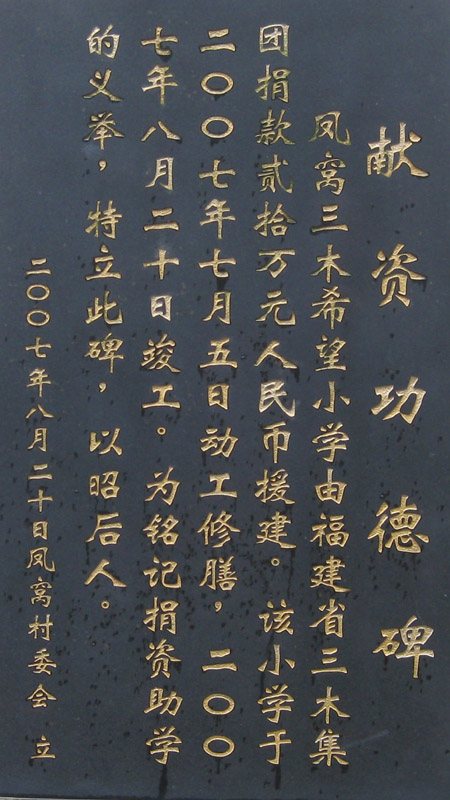 献资功德碑
凤窝三木希望小学由福建省三木集
团捐款贰拾万元人民币援建。该小学于
二〇〇七年七月五日动工修膳，二〇〇
七年八月二十日竣工。为铭记捐资助学
的义举，特立此碑，以昭后人。
二〇〇七年八月二十日凤窝村委会 立